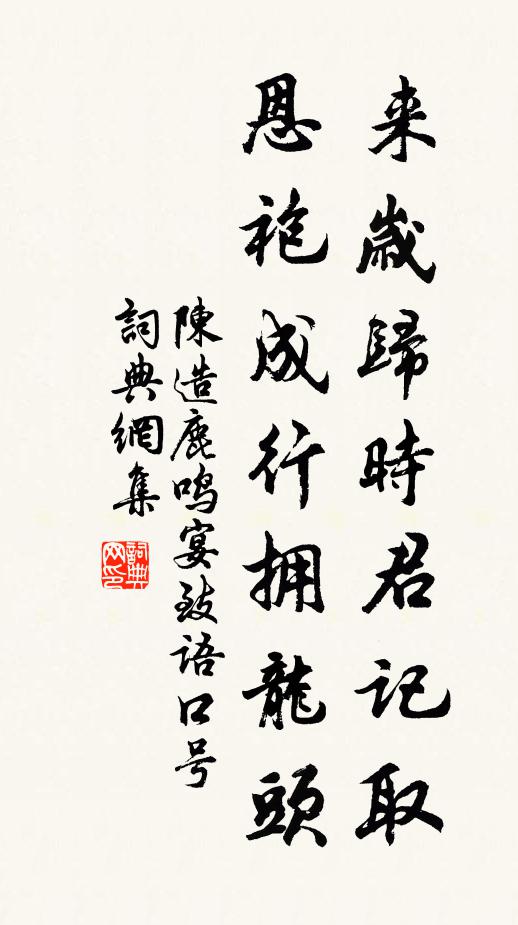 来歲歸時君记取
恩袍成行拥龍頭
陳造鹿鸣宴致语口号
詞典網集
詞典网印